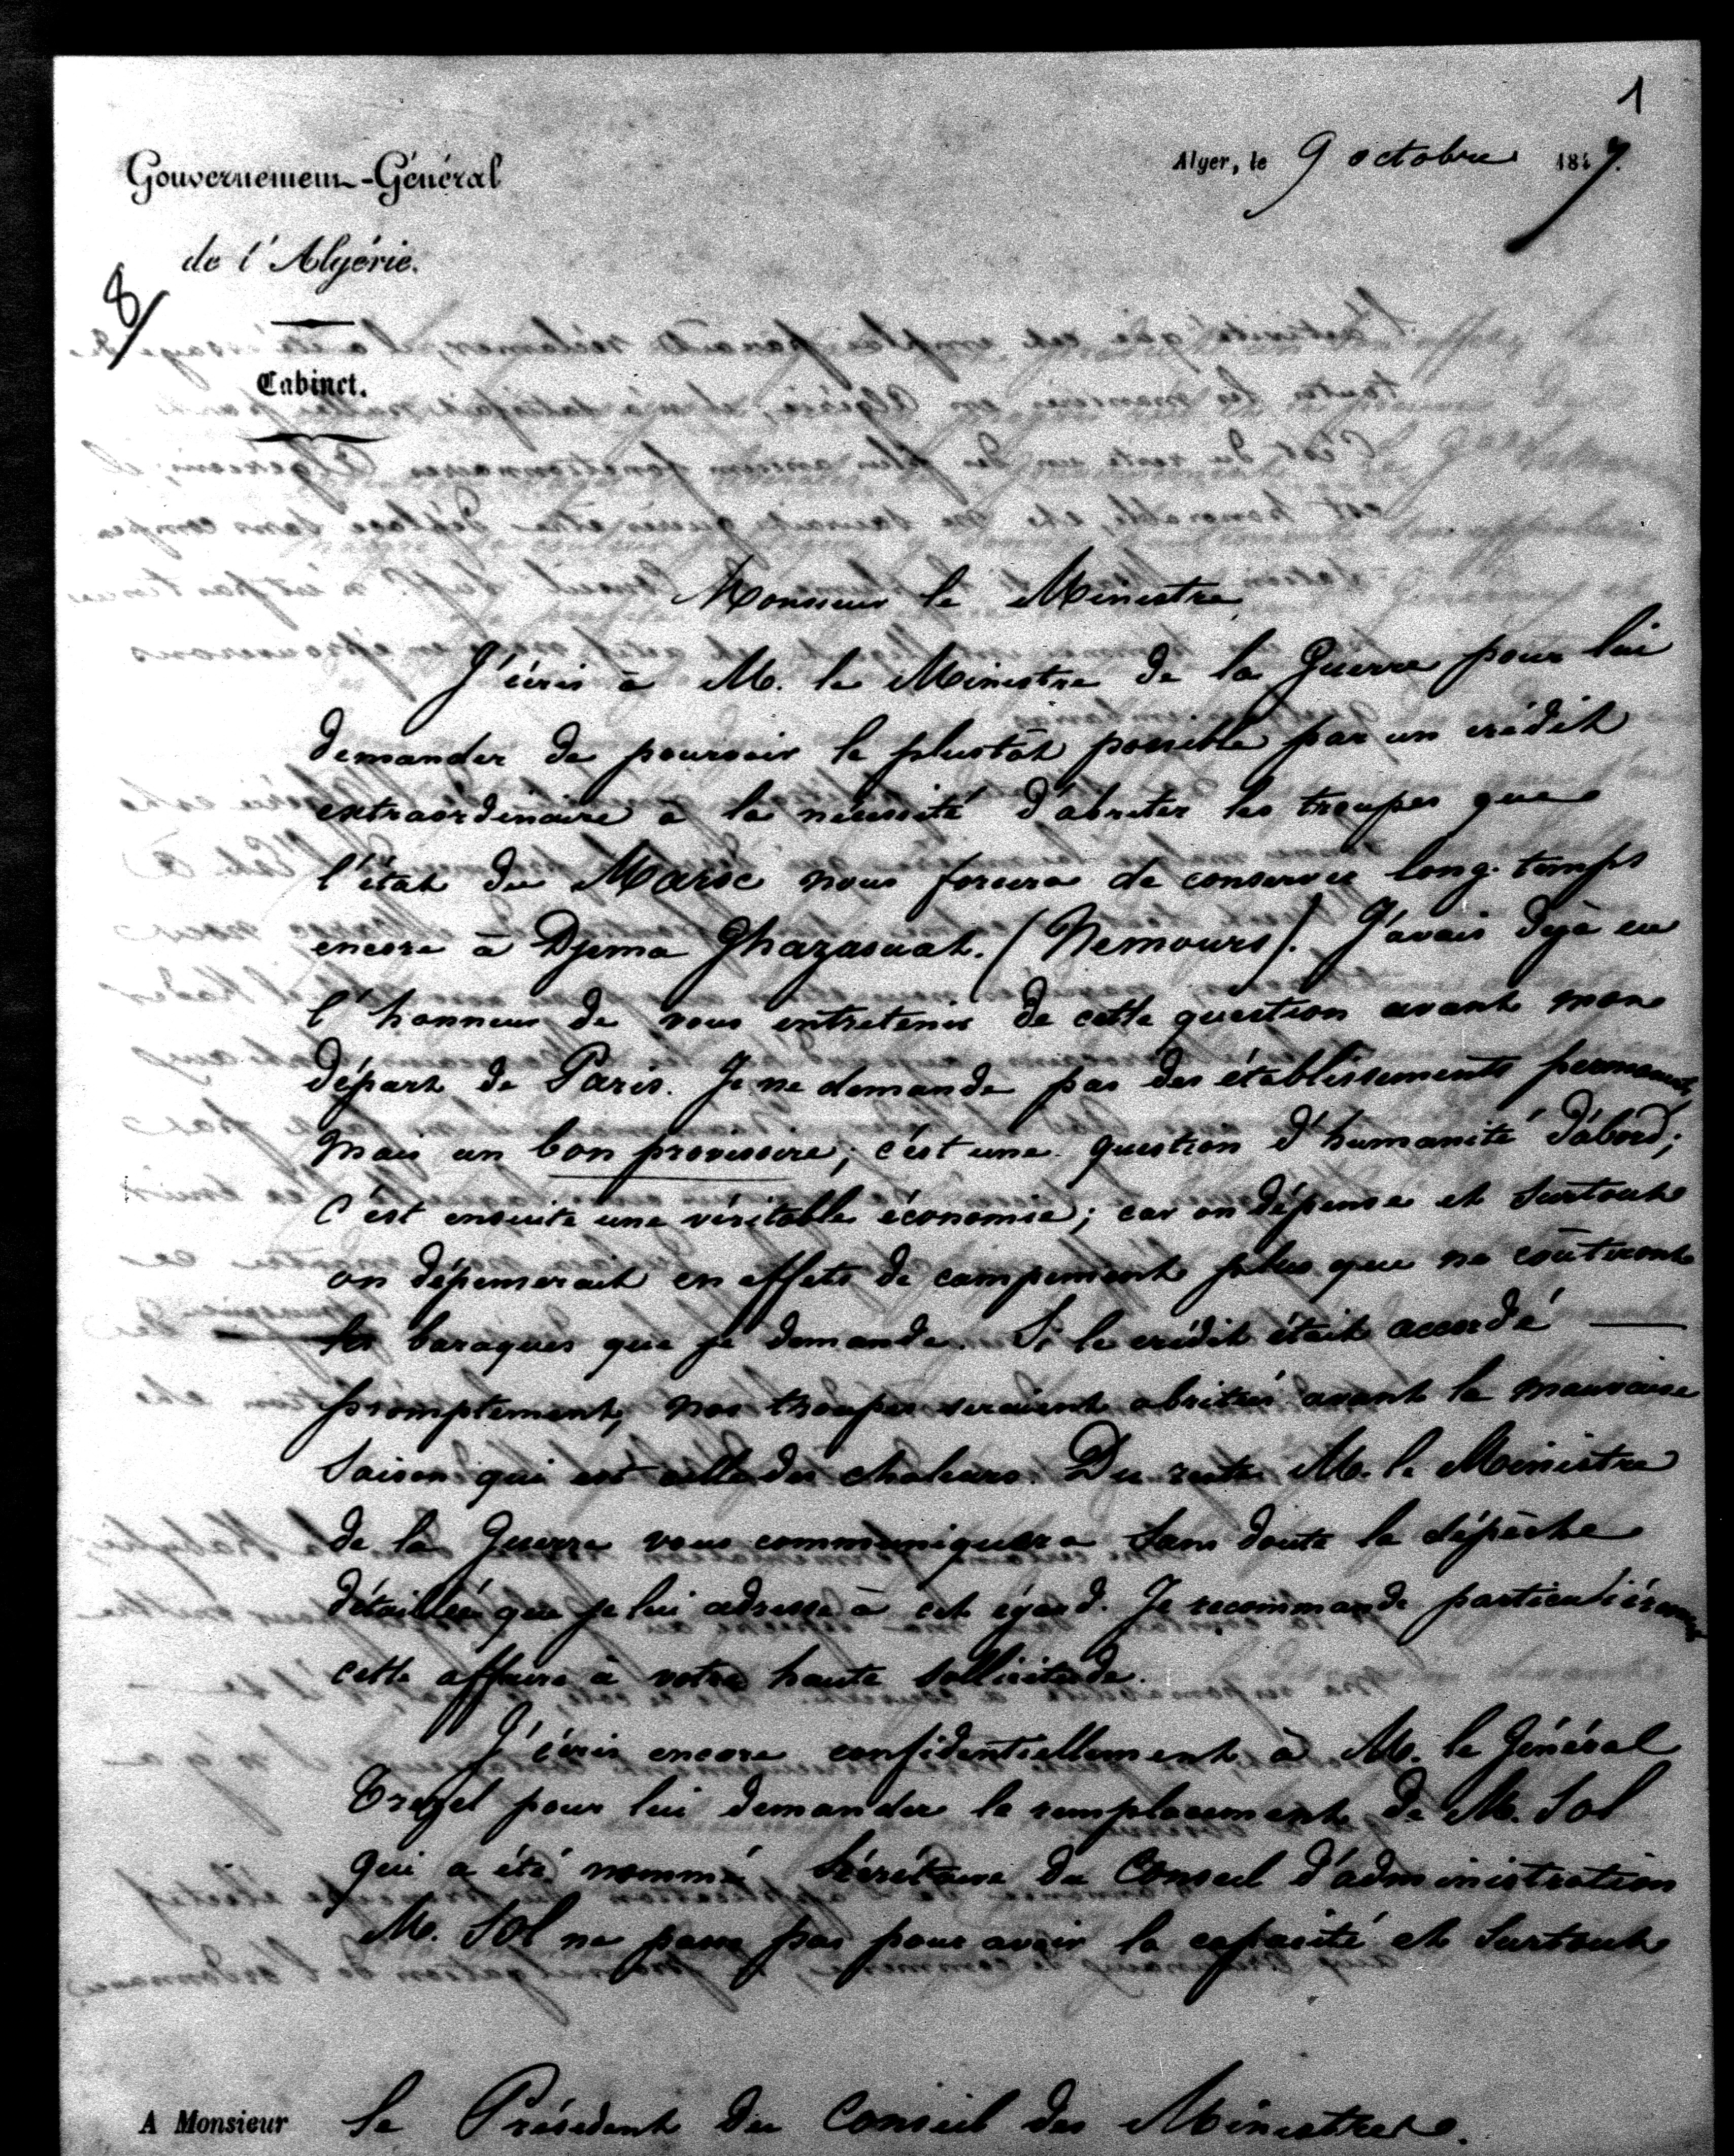 1
Gouvernement-Général
Alger, le 9 octobre 1847.
de l'Algérie.
8/
Cabinet.
Monsieur le Ministre
J'écris à M. le Ministre de la Guerre pour lui
demander de pourvoir le plustôt possible par un crédit
extraordinaire à la nécessité d'abriter les troupes que
l'état du Maroc nous forcera de conserver long-temps
encore à Djema Ghazaouat. (Nemours). J'avais déjà eu
l'honneur de vous entretenir de cette question avant mon
départ de Paris. Je ne demande pas des établissements permanents
mais un bon provisoire; c'est une question d'humanité d'abord;
C'est ensuite une véritable économie; car on dépense et surtout
on dépenserait en effets de campement plus que ne coûteront
les baraques que je demande. Si le crédit était accordé
promptement, nos troupes seraient abritées avant la mauvaise
saison qui est celle des chaleurs. Du reste M. le Ministre
de la Guerre vous communiquera sans doute la dépêche
détaillée que je lui adresse à cet égard. Je recommande particulièrement
cette affaire à votre haute sollicitude.
J'écris encore confidentiellement à M. le Général
Trezel pour lui demander le remplacement de M. Sol
qui a été nommé Sécrétaire du Conseil d'administration
M. Sol ne passe pas pour avoir la capacité et surtout
A Monsieur le Président du Conseil des Ministres.